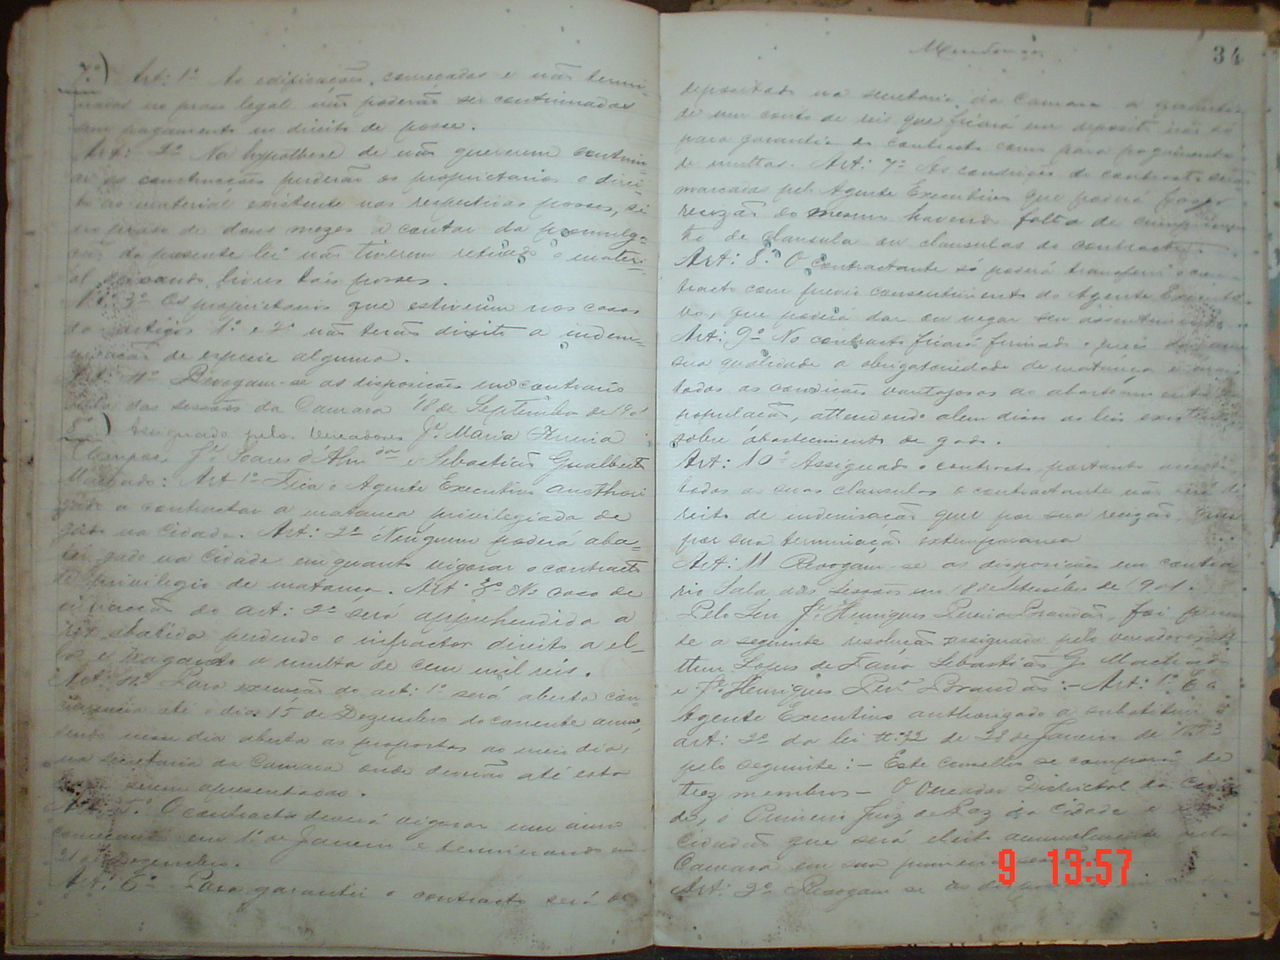 7º) Art: 1º As edificações, começadas e não termi-
nadas no praso legal não poderão ser continuadas
sem pagamento do direito de posse.
Art: 2º Na hypothese de não quererem continu-
ar as construcções perderão os proprietarios o direi-
to ao material existente nas respectivas posses, si
no praso de dous mezes a contar da promulga-
ção da presente lei não tiverem retirado o materi-
al deixando livres taes posses.
Art: 3º Os proprietarios que estiverem nos casos
do artigos 1º e 2º não terão direito a indem-
nisação de especie alguma.
Art: 4º Revogam-se as disposições em contrario
Sala das sessões da Camara 18 de Septembro de 1901
Assignado pelos Vereadores Jº Maria Pereira
Campos, Jº Soares d'Alm.da e Sebastião Gualberto
Machado: Art 1º Fica o Agente Executivo authori
zado a contractar a matança privilegiada de
gado na cidade. Art: 2º Ninguem poderá aba-
ter gado na cidade em quanto vigorar o contracto
de privilegio de matança. Art: 3º No caso de
infracção do art: 2º será apprehendida a
rez abatida perdendo o infractor direito a el-
la e pagando a multa de cem mil réis.
Art: 4º Para execução do art: 1º será aberta con-
currencia até o dia 15 de Dezembro do corrente anno,
sendo nesse dia aberta as propostas ao meio dia,
na secretaria da Camara onde deverão até esta
serem apresentadas.
Art: 5º O contracto deverá vigorar um anno
começando em 1º de Janeiro e terminando em
31 de Dezembro.
Art: 6º Para garantir o contracto será
34
depositado na secretaria da Camara a quantia
de um conto de reis que ficará em deposito não só
para garantia do contracto como para pagamento
de multas. Art: 7º As condições do contracto serão
marcadas pelo Agente Executivo que poderá fazer
recizão do mesmo havendo falta de cumprimen
to de clausula ou clausulas do contracto.
Art: 8º O Contractante só poderá transferir o con
tracto com previo consentimento do Agente Executi
vo, que poderá dar ou negar seu assentimento
Art: 9º No contracto ficará firmado o preço
sua qualidade a obrigatoriedade de matança e mais
todas as condições vantajosas ao abastecimento
população, attendendo alem disso as leis existentes
sobre abastecimento de gado.
Art: 10º Assignado o contracto portanto acceita
todas as suas clausulas o contractante não terá di
reito de indenisação quer por sua recizão, quer
por sua terminação extemporanea
Art: 11 Revogam-se as disposições em contra
rio Sala das Sessões em 18 de Setembro de 1901.
Pelo Snr Jº Henriques Pereira Brandão, foi
se a seguinte resolução assignada pelo vereadores
Lopes de Faria Sebastião G. Machado
e Jº Henriques Per.ª Brandão: - Art: 1º É o
Agente Executivo authorizado a substituir o
art: 2º da lei nº 32 de 28 de Janeiro de
pelo seguinte: - Este conselho se comporá de
trez membros - O Vereador Districtal da Cida
de, o Primeiro Juiz de Paz da Cidade e
Cidadão que será eleito annualmente pela
Camara em sua primeira
Art: 2º Revogam-se as
9 13:57